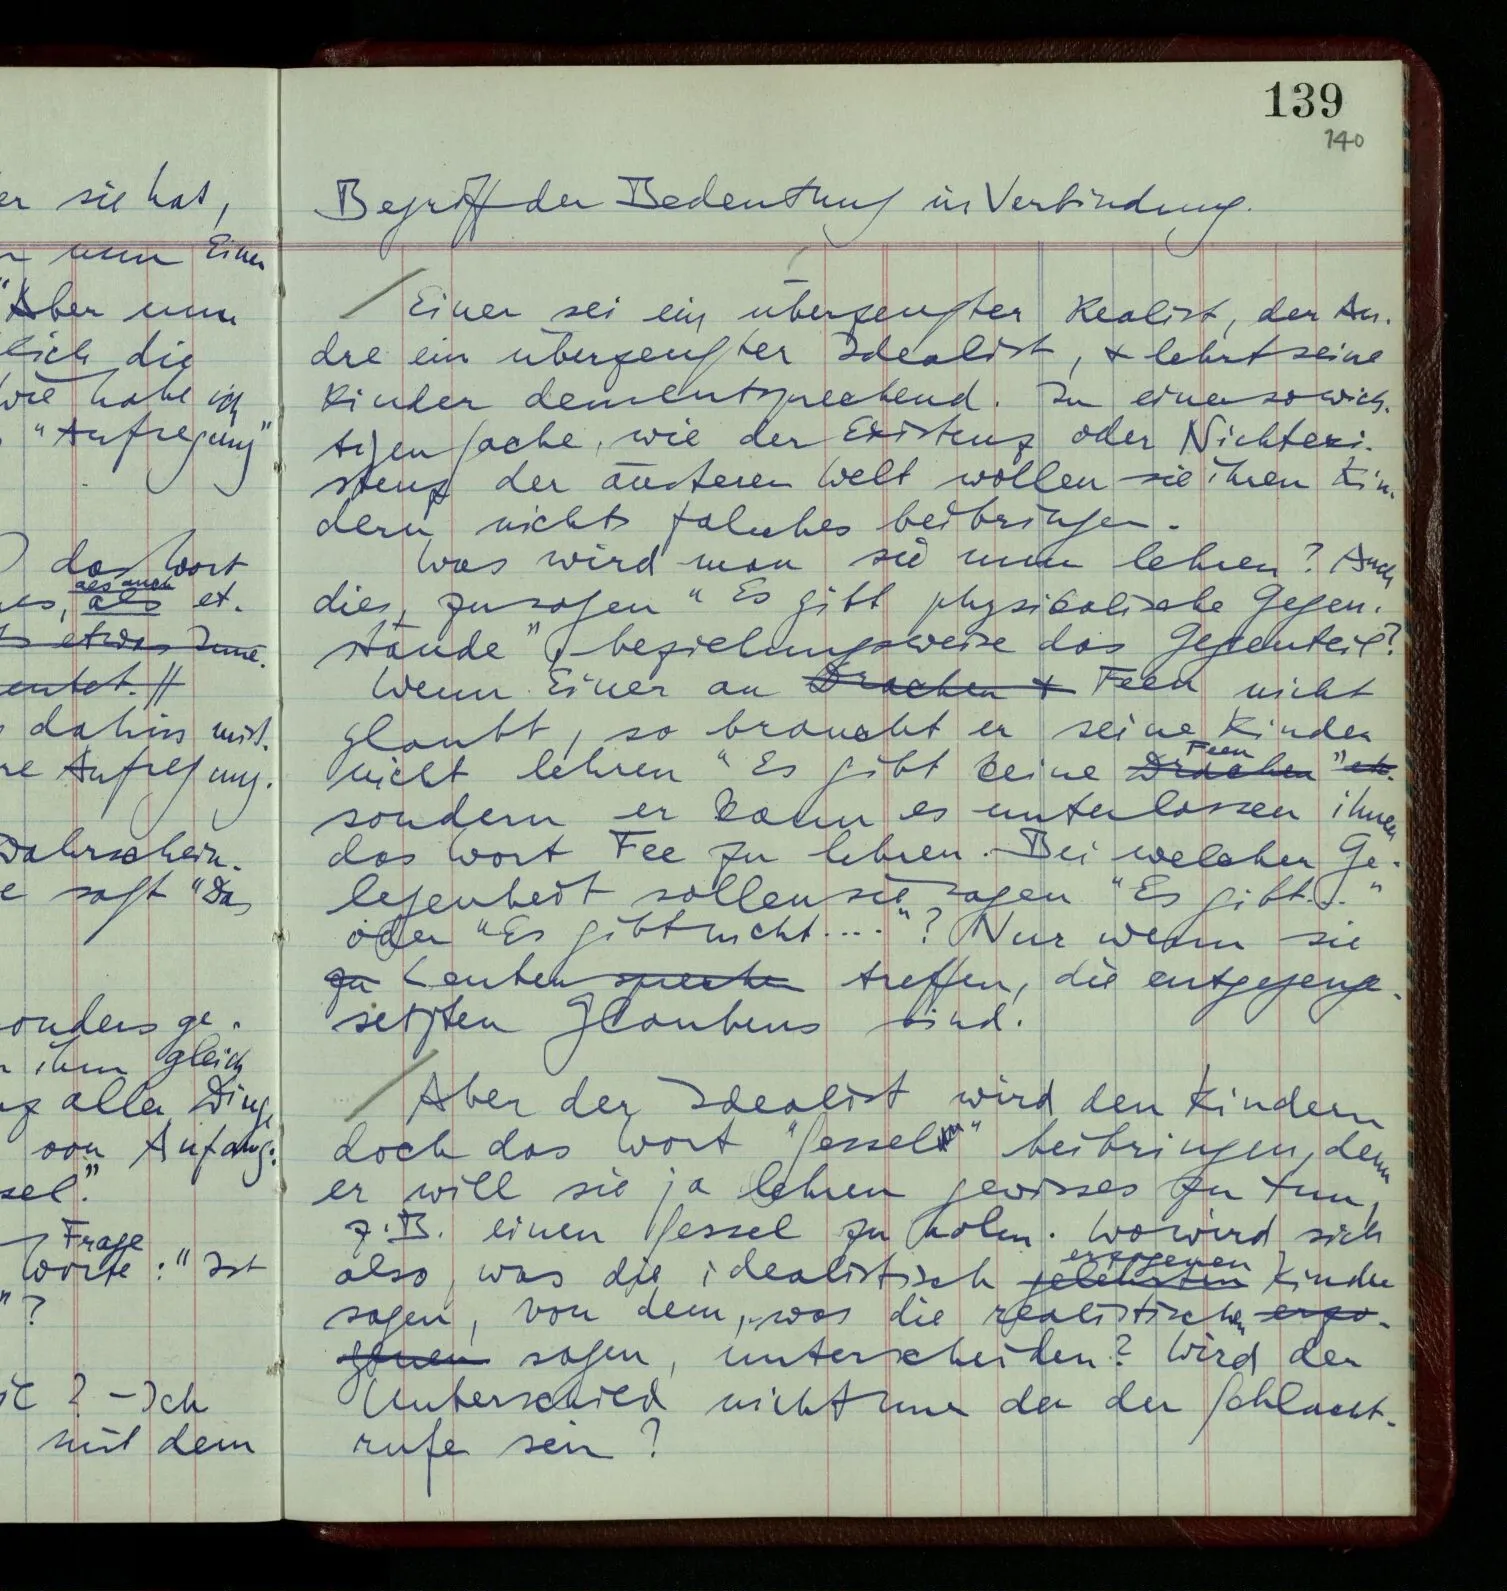 er sie hat,
nun Einer
"Aber nun
lich die
wie habe ich
"Aufregung"
das Wort
als auch
es, als et-
etwas Inne-
entet. //
dahin mit-
re Aufregung.
Wahrschein-
e sagt "Das
sonders ge-
ihm gleich
aller Dinge
von Anfang:
sel."
Frage
Worte: "Ist
"?
? – Ich
mit dem
139
140
Begriff der Bedeutung in Verbindung.
/ Einer sei ein überzeugter Realist, der An-
dre ein überzeugter Idealist, & lehrt seine
Kinder dementsprechend. In einer so wich-
tigen Sache, wie der Existenz oder Nichtexi-
stenz der äußeren Welt wollen sie ihren Kin-
dern nichts falsches beibringen.
Was wird man sie nun lehren? Auch
dies, zu sagen "Es gibt physikalische Gegen-
stände", beziehungsweise das Gegenteil?
Wenn Einer an Drachen & Feen nicht
glaubt, so braucht er seine Kinder
Feen
nicht lehren "Es gibt keine Drachen" etc.
sondern er kann es unterlassen ihnen
das Wort Fee zu lehren. Bei welcher Ge-
legenheit sollen sie sagen "Es gibt..."
oder "Es gibt nicht...."? Nur wenn sie
zu Leuten sprechen treffen, die entgegenge-
setzten Glaubens sind.
/ Aber der Idealist wird den Kindern
doch das Wort "Sessel" beibringen, denn
er will sie ja lehren gewisses zu tun,
z.B. einen Sessel zu holen. Wo wird sich
erzogenen
also, was die idealistisch gelehrten Kinder
sagen, von dem, was die realistischen erzo-
genen sagen, unterscheiden? Wird der
Unterschied nicht nur der der Schlacht-
rufe sein?